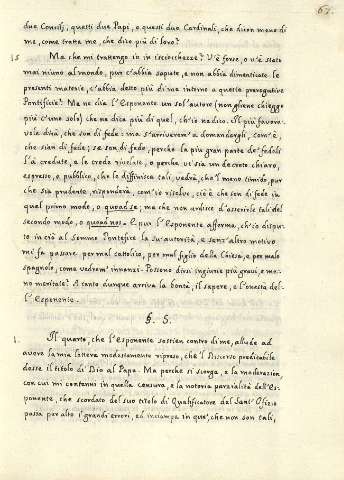 67.
due Concilj, questi due Papi, o questi due Cardinali, che dicon meno di
me, come tratta me, che dico più di loro?
15 Ma che mi trattengo in in isciocchezze? V'è forse, o v'è stato
mai niuno al mondo, pur c'abbia saputo, e non abbia dimenticate le
presenti materie, c'abbia detto più di me intorno a queste prerogative
Pontificie? Ma ne dia l'Esponente un sol'autore (non gliene chieggo
più c'uno solo) che ne dica più di quel, ch'io ne dico. Il più favore-
vole dirà, che son di fede: ma s'arriverem' a domandargli, com'è,
che sian di fede; se son di fede, perchè la più gran parte de' fedeli
l'à credute, e le crede rivelate, o perche vi sia un decreto chiaro,
espresso, e pubblico, che le diffinisca tali, vedrà, che 'l meno timido, pur
che sia prudente, risponderà, com'io risolve, ciò è che son di fede in
quel primo mode, o quoad se, ma che non ardisce d'asserirle tali del
secondo modo, o quoad nos. E pur l'Esponente afferma, ch'io dispu-
to in ciò al Sommo Pontefice la su'autorità, e senz'altro motivo
mi fa passare per mal cattolico, per mal figlio della Chiesa, e per malo
spagnolo, come vedrem' innanzi. Possono dirsi ingiurie più gravi, e me-
no meritate? A tanto dunque arriva la bontà, il sapere, e l'onestà del-
l'Esponente.
§. 5.
1. Il quarto, che l'Esponente sostien contro di me, allude ad
avere la mia lettera modestamente ripreso, che 'l Discorso predicabile
desse il titolo di Dio al Papa. Ma perche si scorga, e la moderazion,
con cui mi contenni in quella censura, e la notoria parzialità dell'Es-
ponente, che scordato del suo titolo di Qualificatore del Sant'Ofizio
passa per alto i grandi errori, ed inciampa in que', che non son tali,